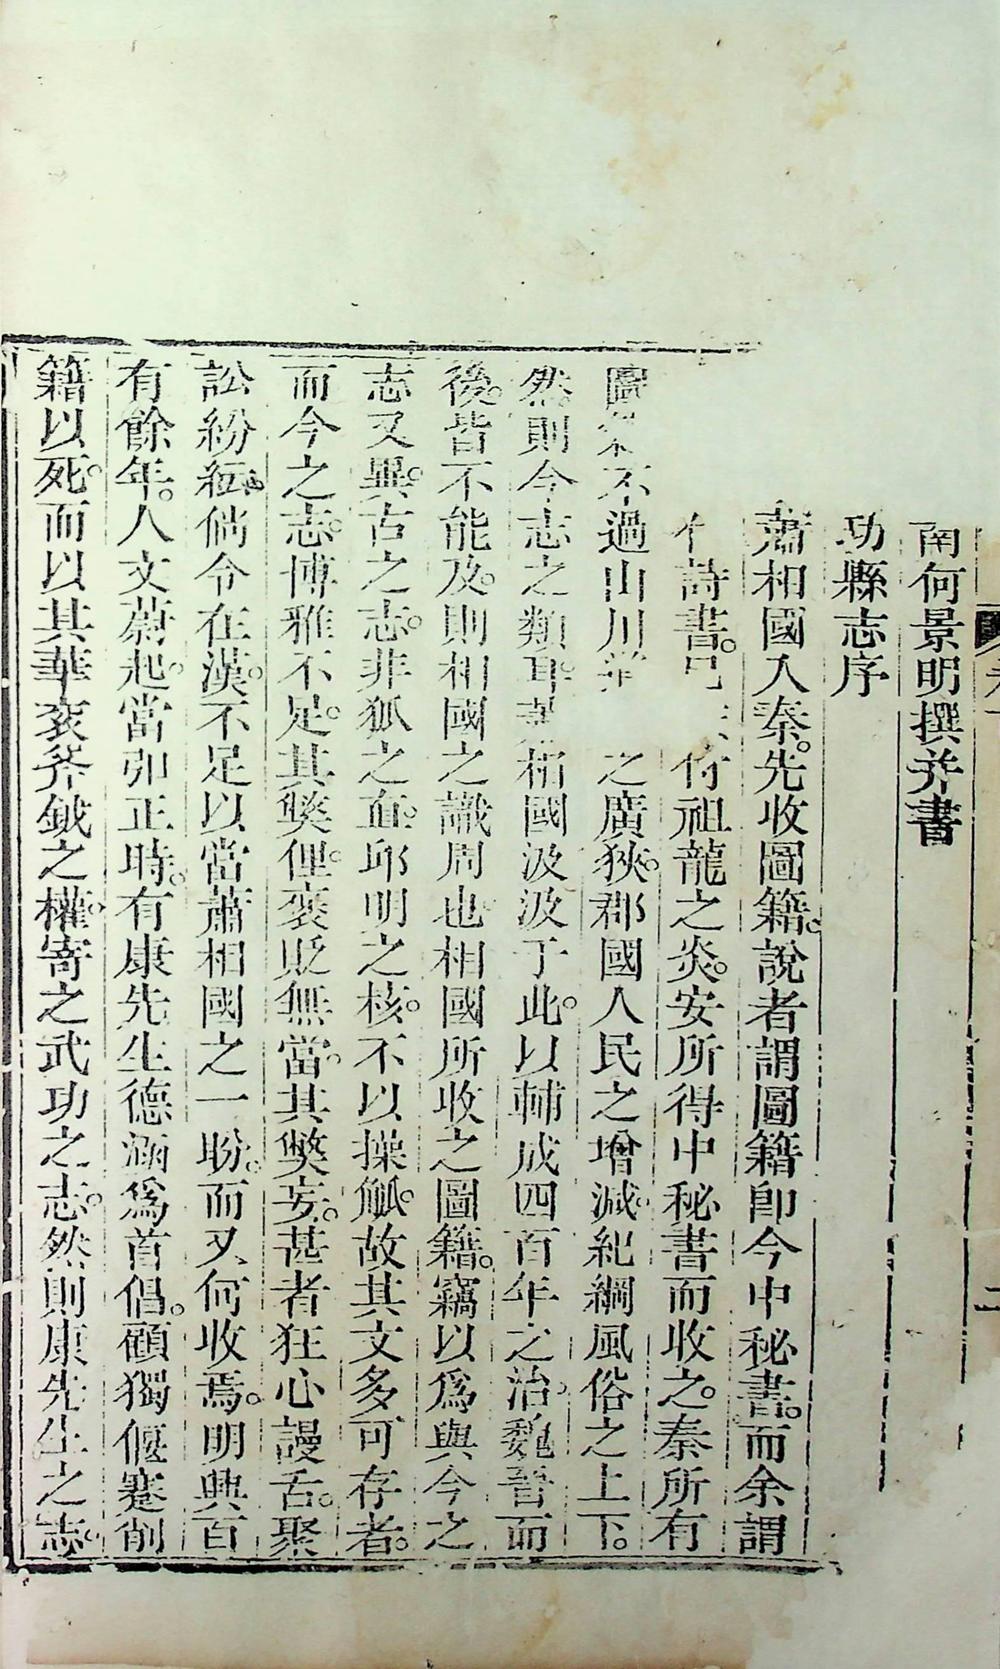 南何景明撰并書
功縣志序
蕭相國入秦。先收圖籍。說者謂圖籍卽今中秘書。而余謂
詩書。祖龍之炎。安所得中秘書而收之。秦所有
圖不過山川之廣狹。郡國人民之增減。紀綱風俗之上下。
然。則今志之類耳。相國汲汲于此。以輔成四百年之治。魏晉而
後。皆不能及。則相國之識周也。相國所收之圖籍。竊以爲與今之
志又異。古之志。非狐之直。邱明之核。不以操觚。故其文多可存者。
而今之志。博雅不足。其獘俚。褒貶無當。其獘妄。甚者狂心謾舌。聚
訟紛紜。倘令在漢。不足以當蕭相國之一盼。而又何收焉。明興百
有餘年。人文蔚起。當弘正時。有康先生德涵爲首倡。顧獨偃蹇削
籍以死。而以其華袞斧鉞之權。寄之武功之志。然則康先生之志。
二